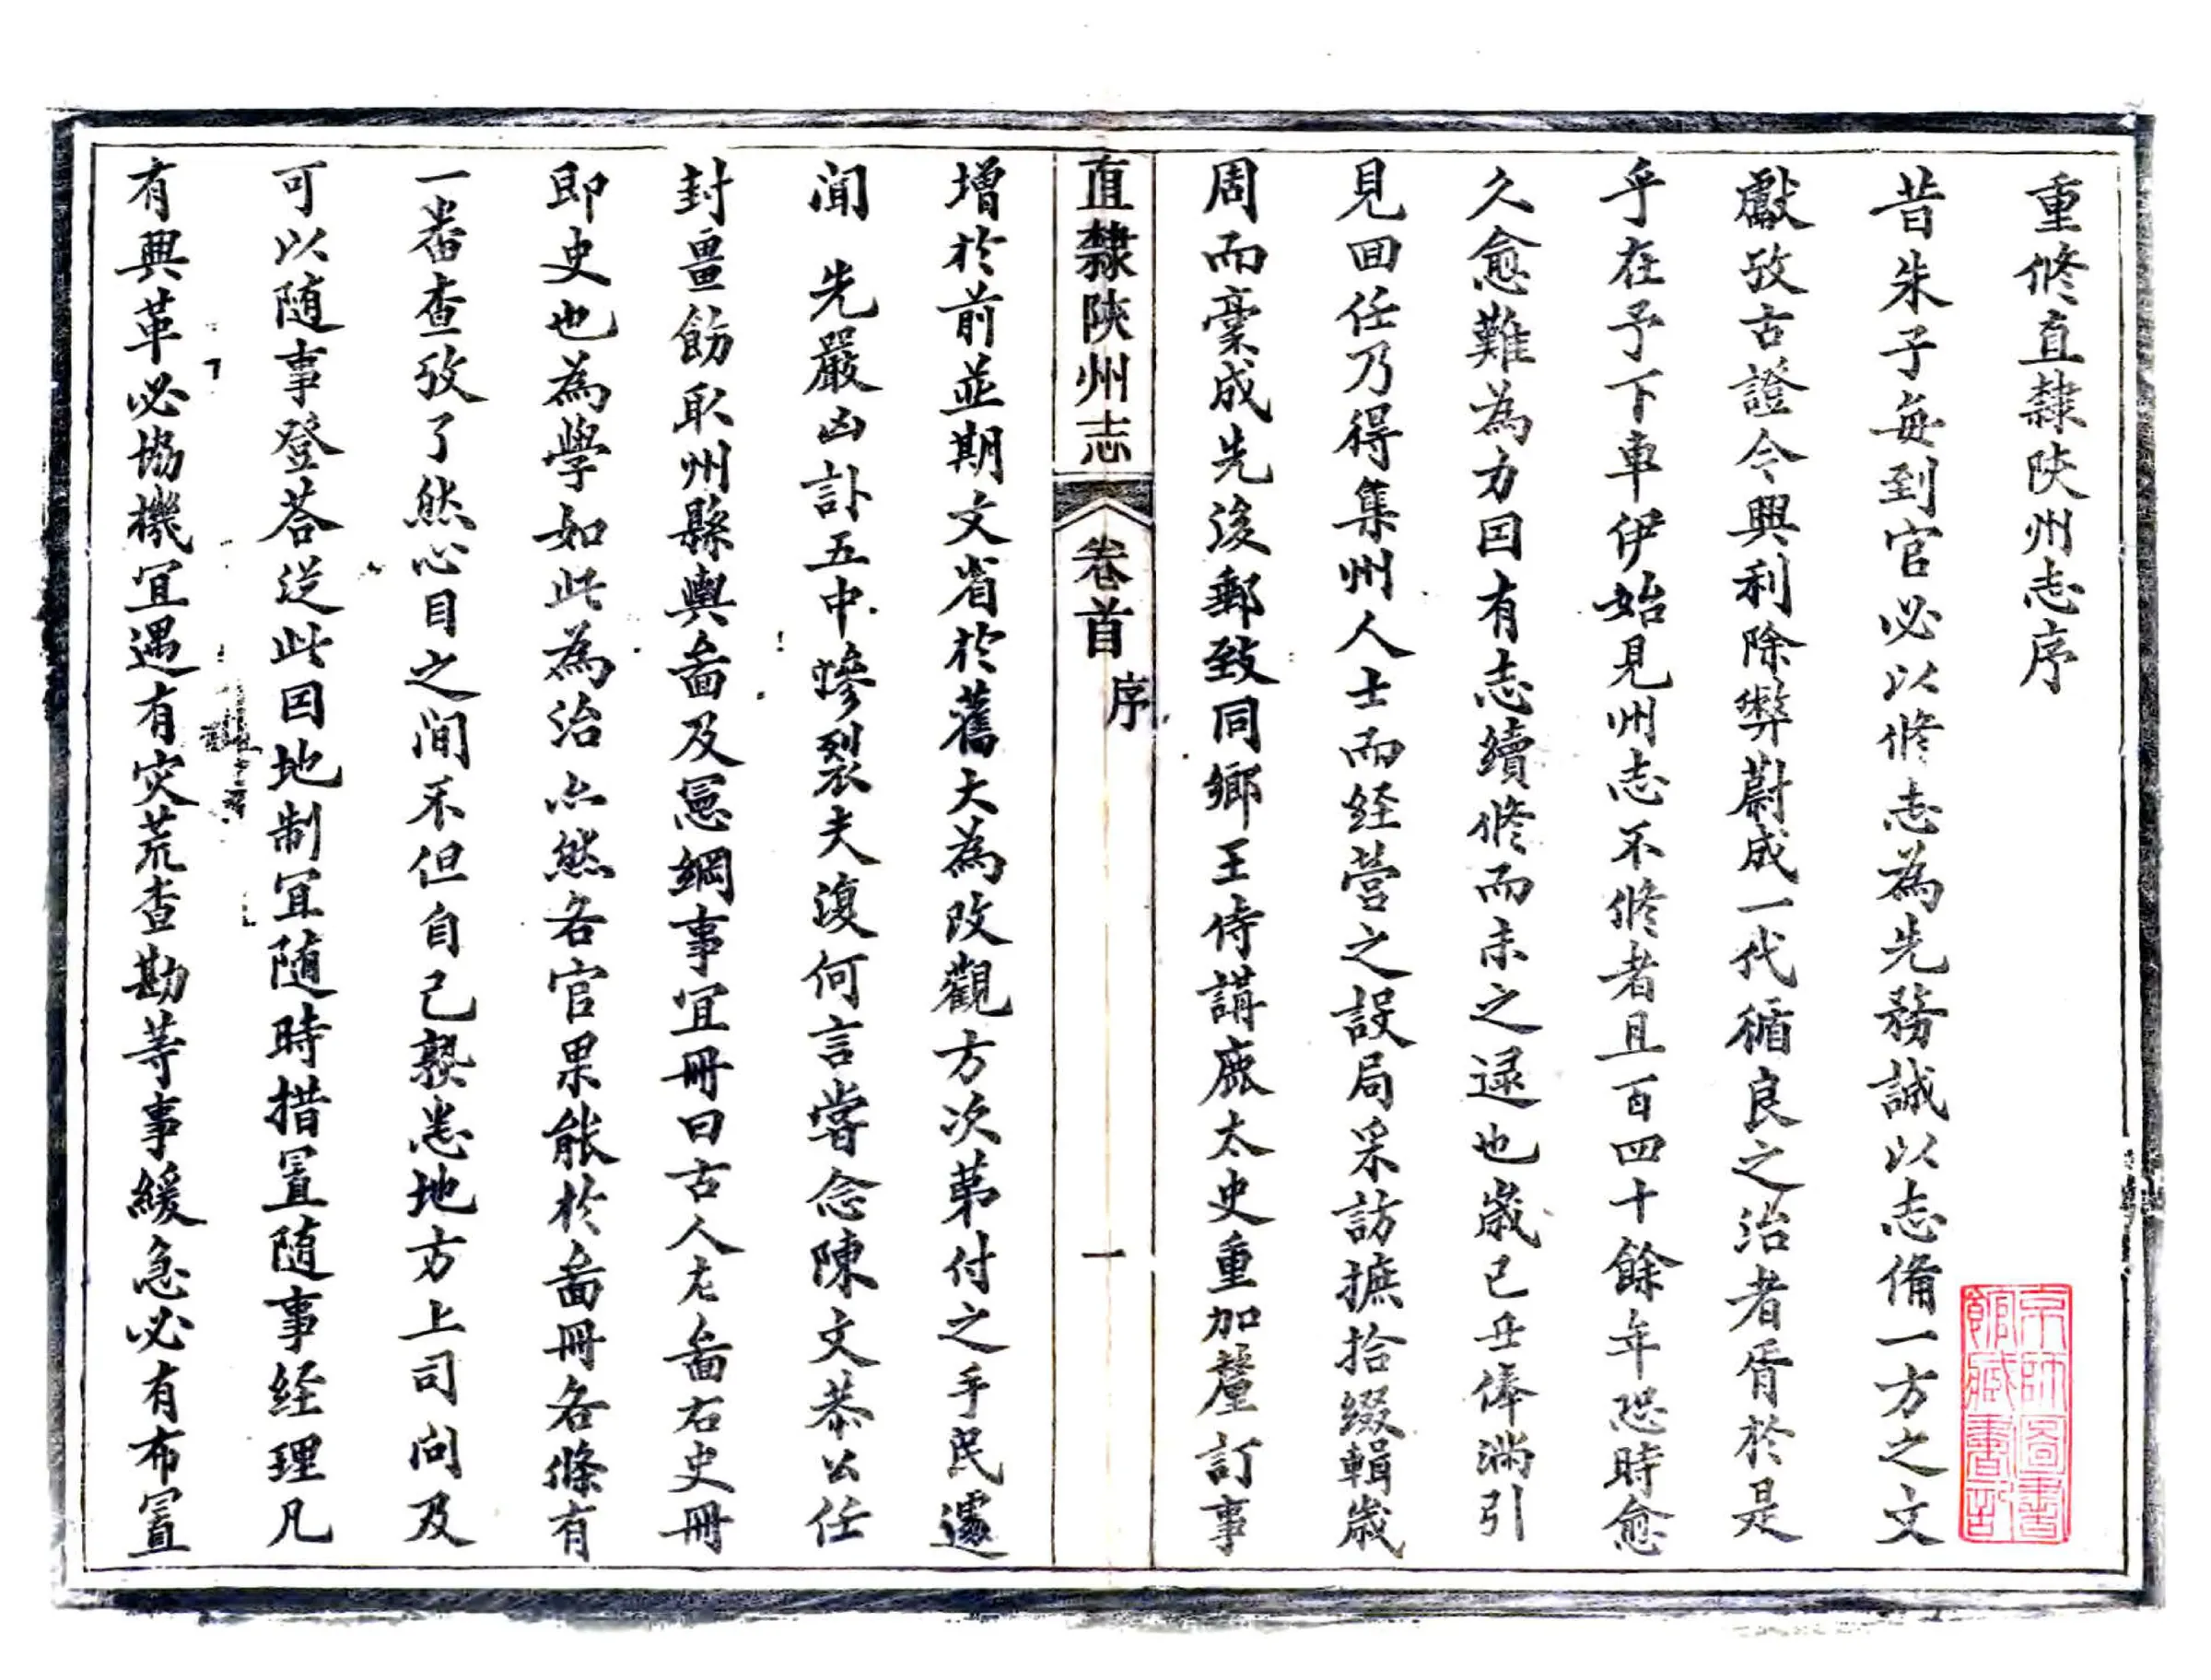 重修直隸陝州志序
昔朱子每到官必以修志為先務誠以志備一方之文
獻攷古證今興利除弊蔚成一代循良之治者胥於是
乎在予下車伊始見州志不修者且百四十餘年恐時愈
久愈難為力因有志續修而未之逮也歲己丑俸滿引
見回任乃得集州人士而经營之設局采訪摭拾缀輯歲
周而稾成先後郵致同鄉王侍講鹿太史重加釐訂事
直隸陝州志 卷首 序 一
增於前並期文省於舊大為改觀方次苐付之手民遽
聞 先嚴凶訃五中慘裂夫復何言嘗念陳文恭公任
封疆飭取州縣輿啚及憲綱事宜冊曰古人左啚右史冊
即史也為學如此為治亦然各官果能於啚冊各條有
一番查攷了然心目之间不但自己熟悉地方上司问及
可以随事登荅從此因地制宜随時措置随事经理凡
有興革必協機宜遇有灾荒查勘等事緩急必有布置
京師圖書
館藏書記